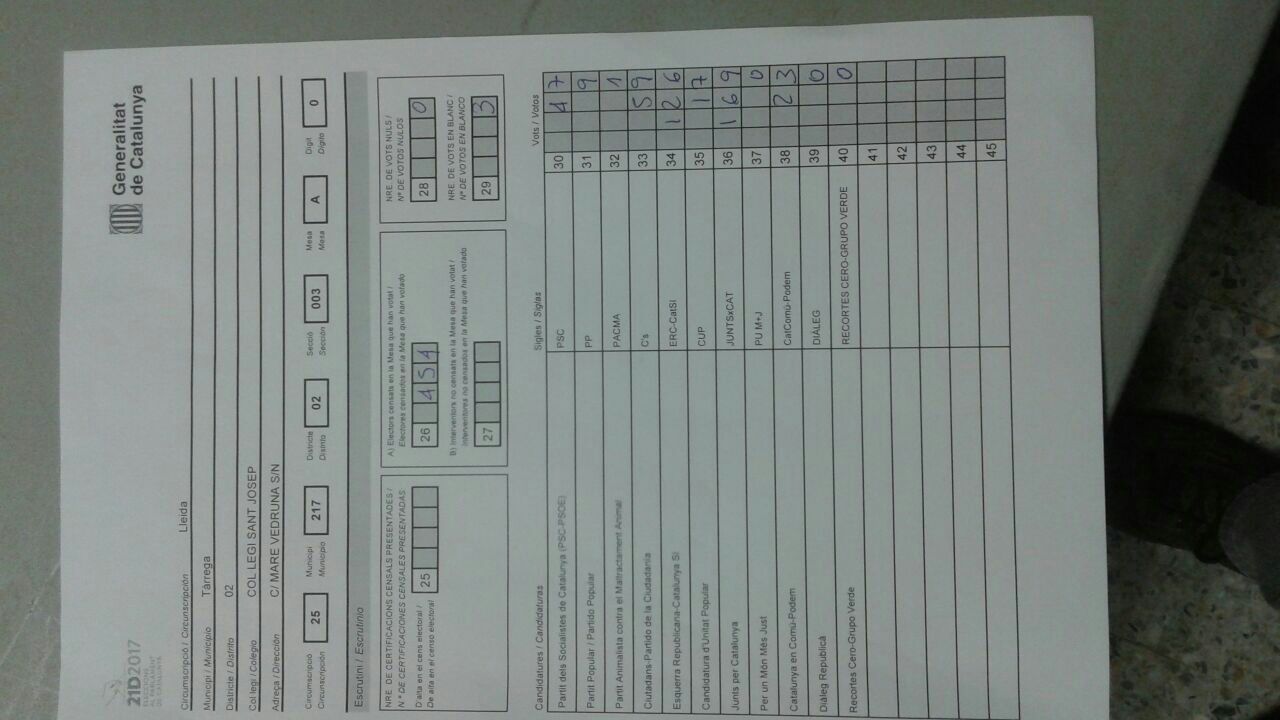 21D2017
ELECCIONS
AL PARLAMENT
DE CATALUNYA
Generalitat
de Catalunya
Circumscripció / Circunscripción Lleida
Municipi / Municipio Tàrrega
Districte / Distrito 02
Col·legi / Colegio COL·LEGI SANT JOSEP
Adreça / Dirección C/ MARE VEDRUNA S/N
Circumscripció
Circunscripción 25
Municipi
Municipio 217
Districte
Distrito 02
Secció
Sección 003
Mesa
Mesa A
Dígit
Dígito 0
Escrutini / Escrutinio
NRE. DE CERTIFICACIONS CENSALS PRESENTADES /
Nº DE CERTIFICACIONES CENSALES PRESENTADAS
D'alta en el cens electoral /
De alta en el censo electoral 25
A) Electors censats en la Mesa que han votat /
Electores censados en la Mesa que han votado
26 454
B) Interventors no censats en la Mesa que han votat /
Interventores no censados en la Mesa que han votado
27
NRE. DE VOTS NULS /
Nº DE VOTOS NULOS
28 0
NRE. DE VOTS EN BLANC /
Nº DE VOTOS EN BLANCO
29 3
Candidatures / Candidaturas Sigles / Siglas Vots / Votos
Partit dels Socialistes de Catalunya (PSC-PSOE) PSC 30 47
Partit Popular / Partido Popular PP 31 9
Partit Animalista contra el Maltractament Animal PACMA 32 1
Ciutadans-Partido de la Ciudadanía C's 33 59
Esquerra Republicana-Catalunya Sí ERC-CatSí 34 126
Candidatura d'Unitat Popular CUP 35 17
Junts per Catalunya JUNTSxCAT 36 169
Per un Món Més Just PU M+J 37 0
Catalunya en Comú-Podem CatComú-Podem 38 23
Diàleg Republicà DIÀLEG 39 0
Recortes Cero-Grupo Verde RECORTES CERO-GRUPO VERDE 40 0
41
42
43
44
45